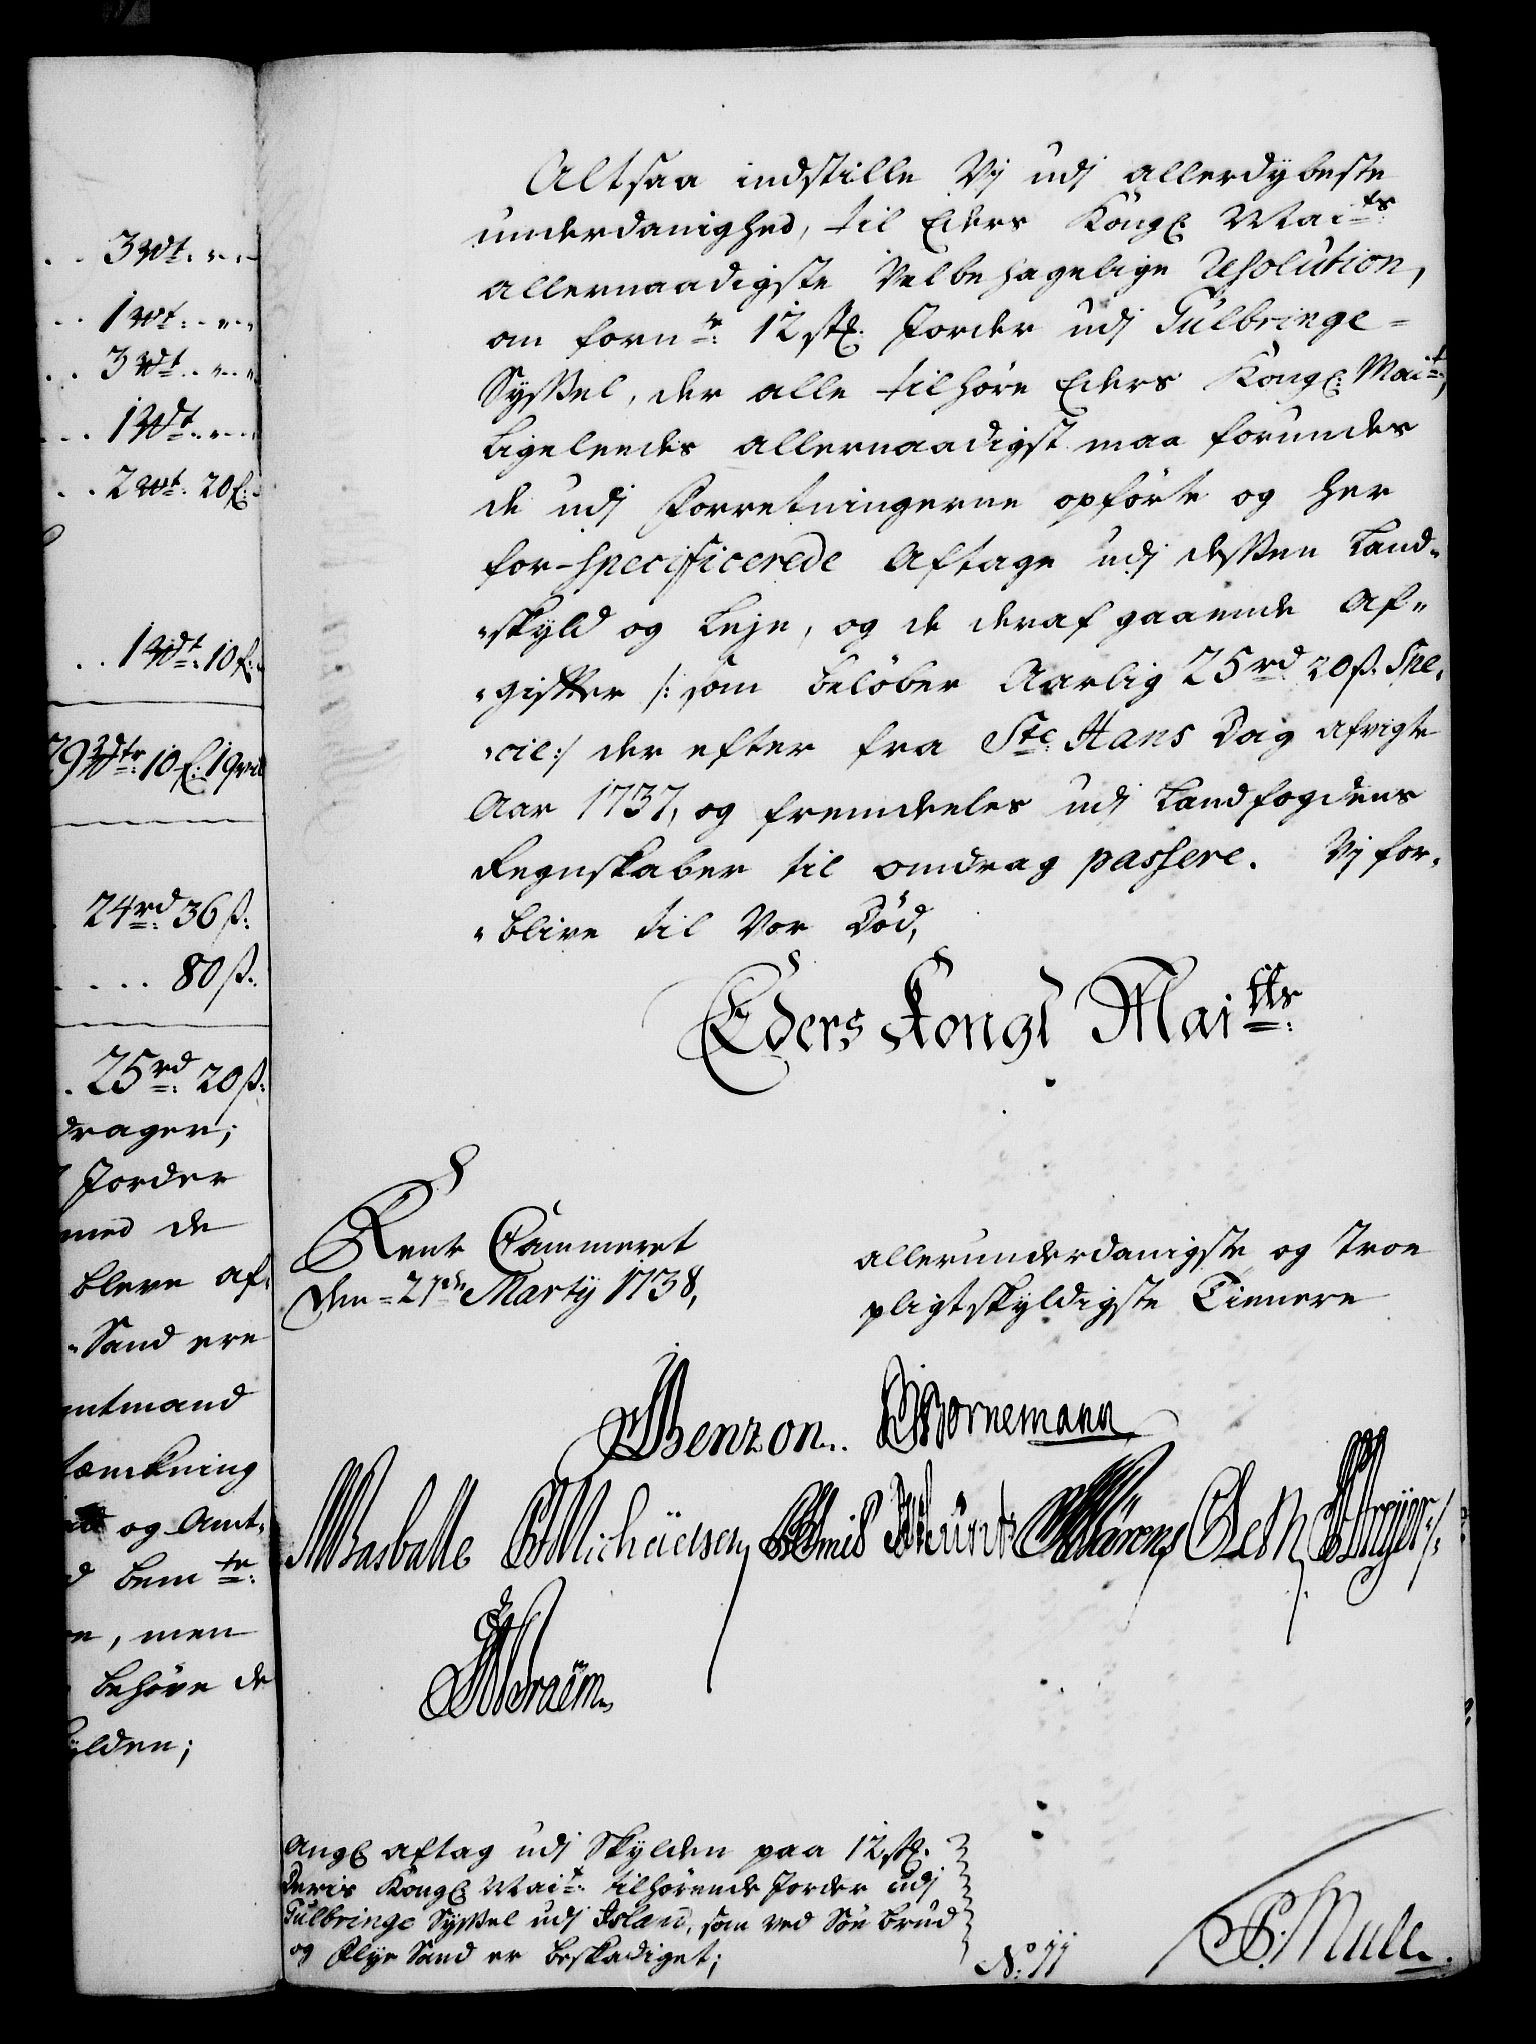 3 Wdt:
1 Wdt:
3 Wdt:
1 Wdt:
2 Wdt: 20 f:
1 Wdt: 10 f:
10 f: 19
24 rd: 36 ß:
80 ß:
25 rd: 20 ß:
drager;
Jorder
med de
bleve af,
Sand ere
mtmand
og Amt,
bem te:
e, men
behöve de
ylden;
Altsaa indstille Vj udj allerdybeste
underdanighed, til Eders Kongl: Mai ts:
allernaadigste Velbehagelige Resolution,
om forn te: 12 stk: Jorder udj Gulbringe-
Syssel, der alle tilhöre Eders Kongl: Mait:,
ligeleedes allernaadigst maa forundes
de udj Forretningerne opförte og her
for-specificerede Aftage udj dessen Land-
skyld og Leje, og de deraf gaaende Af-
gifter /: som belöber Aarlig 25 rd: 20 ß: Spe-
cie:/ der efter fra Ste: Hans Dag afvigte
Aar 1737, og fremdeeles udj Landfogdens
Regnskaber til omdrag passere. Vj for-
blive til Vor Död,
Eders Kongl Mai tts:
Rente Cammeret
den 21de Martij 1738,
allerunderdanigste og Troe
pligtskyldigste Tienere
Benzon. Bornemann
Wasballe Michäelsen
Angl aftag udj Skylden paa 12 stk:
deris Kongl Mait: tilhörende Jorder udj
Gulbringe Syssel udj Island, som ved Söe brud
og Flye Sand er beskadiget;
No: 11
P. Mule.